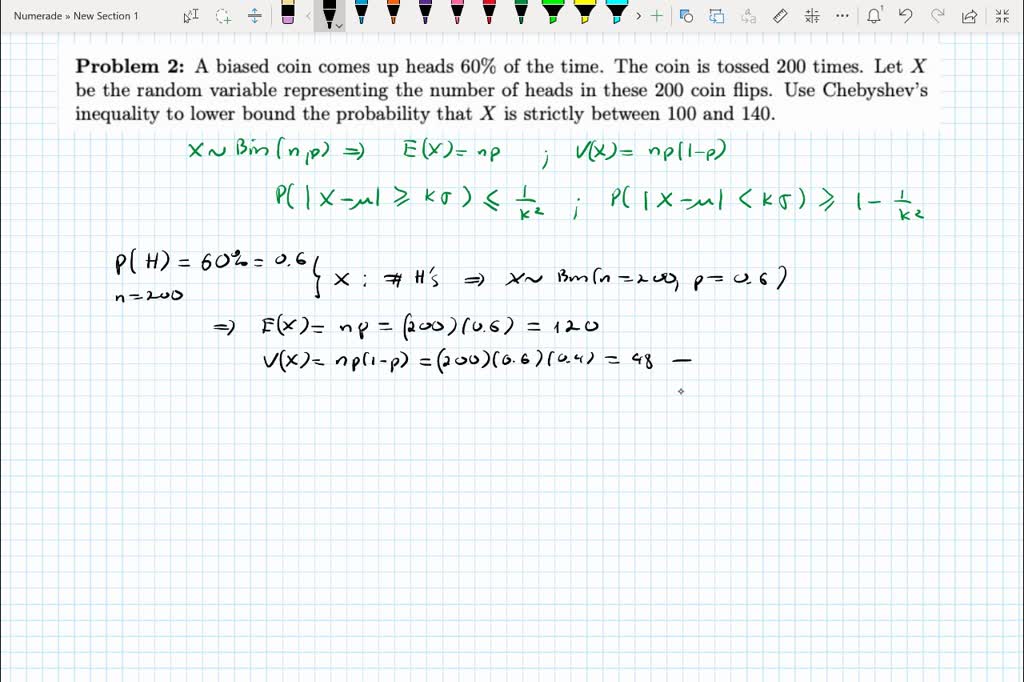 Numerade » New Section 1
Problem 2: A biased coin comes up heads 60% of the time. The coin is tossed 200 times. Let X
be the random variable representing the number of heads in these 200 coin flips. Use Chebyshev's
inequality to lower bound the probability that X is strictly between 100 and 140.
X ~ Bin(n,p) ⇒ E(X) = np ; V(X) = np(1-p)
P(|X-μ| ⩾ kσ) ⩽ 1/k² ; P(|X-μ| < kσ) ⩾ 1 - 1/k²
P(H) = 60% = 0.6
n = 200
} X : # H's ⇒ X ~ Bin(n = 200, p = 0.6)
⇒ E(X) = np = (200)(0.6) = 120
V(X) = np(1-p) = (200)(0.6)(0.4) = 48 —